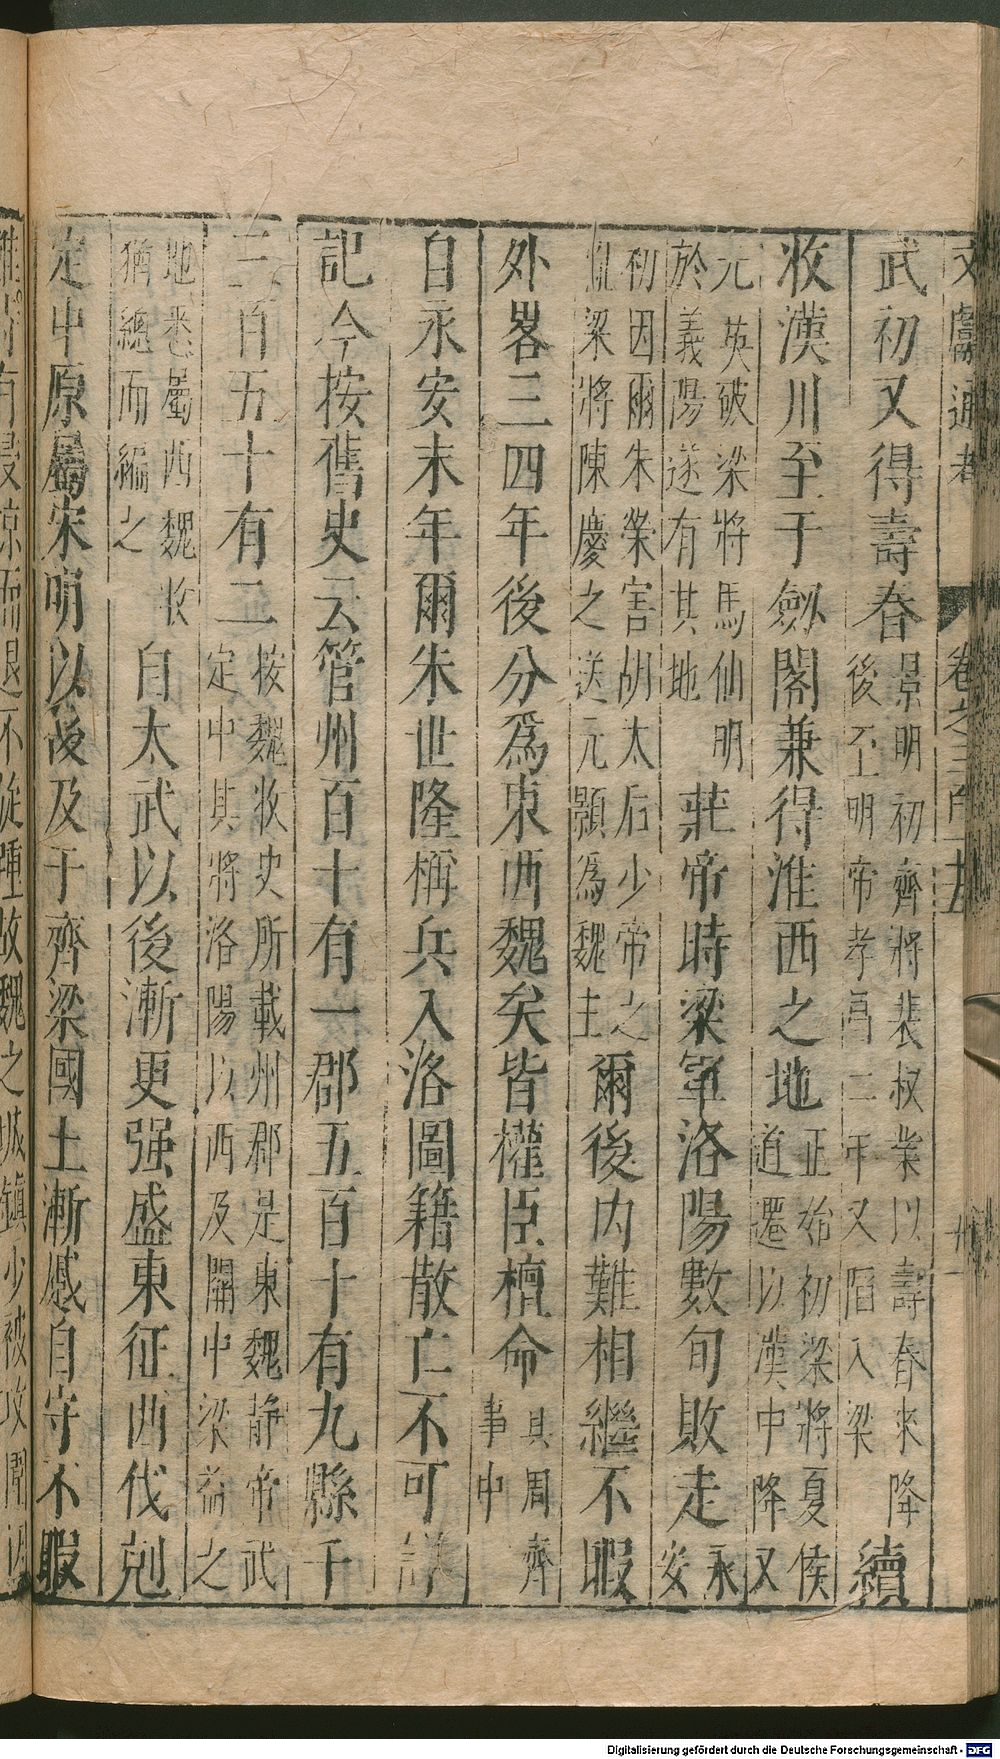 文獻通考 卷之三百十五
武初又得壽春景明初齊將裴叔業以壽春來降後至明帝孝昌二年又陷入梁續
收漢川至于劒閣兼得淮西之地正始初梁將夏侯道遷以漢中降又
元英破梁將馬仙明於義陽遂有其地莊帝時梁軍洛陽數旬敗走永安
初因爾朱榮害胡太后少帝之亂梁將陳慶之送元顥為魏主爾後內難相繼不暇
外畧三四年後分爲東西魏矣皆權臣檀命具周齊事中
自永安末年爾朱世隆稱兵入洛圖籍散亡不可詳
記今按舊史云管州百十有一郡五百十有九縣千
三百五十有二按魏收史所載州郡是東魏静帝武定中其將洛陽以西及關中梁益之
地悉屬西魏收猶總而編之自太武以後漸更强盛東征西伐剋
定中原屬宋明以後及于齊梁國土漸蹙自守不暇
有 退不從踵故魏之城鎮少被攻
Digitalisierung gefördert durch die Deutsche Forschungsgemeinschaft - DFG